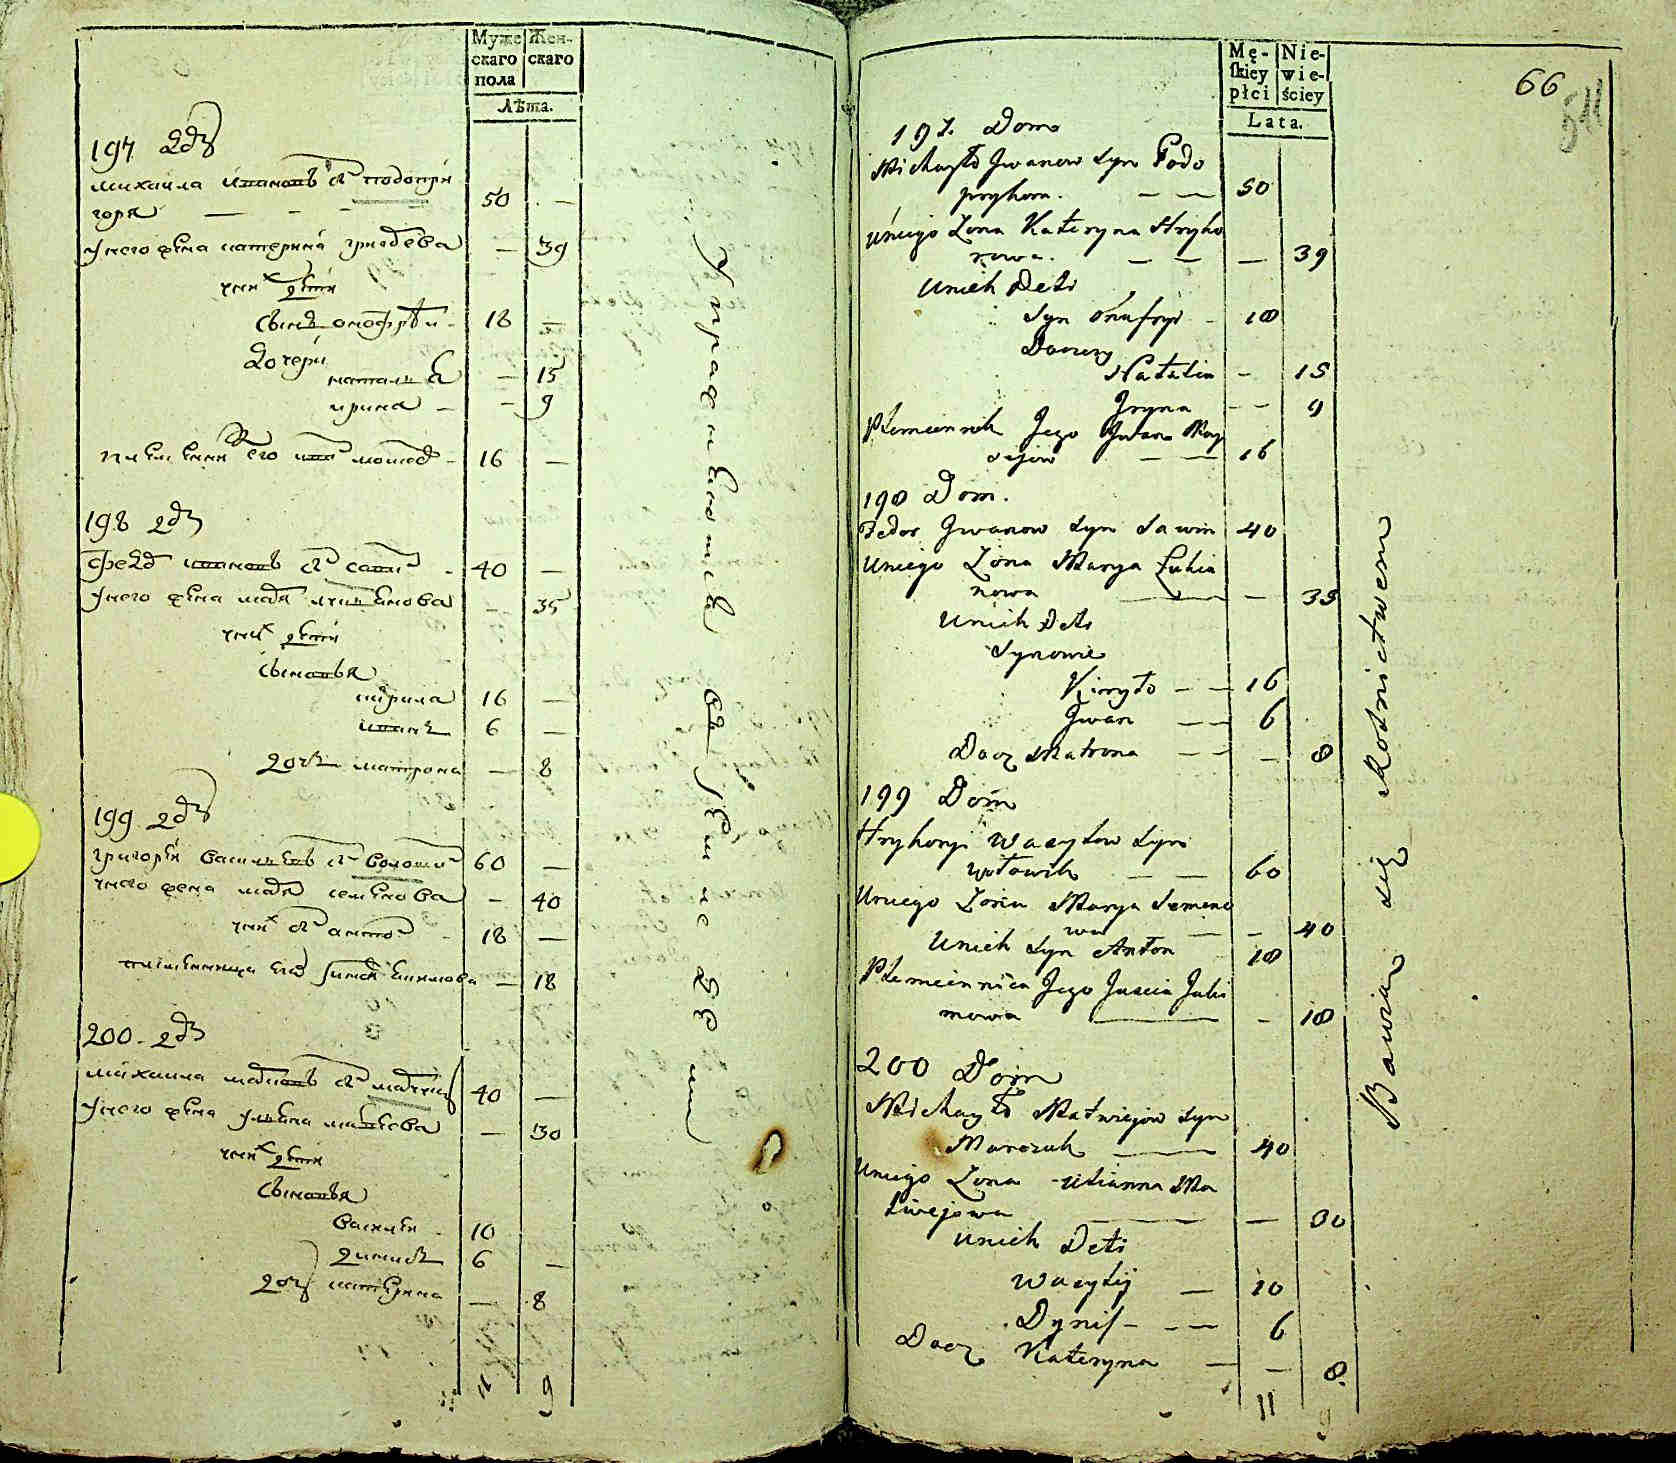 Муже
скаго
пола
Жен-
скаго
Лѣта.
197 дв
михаила ивановъ сн подопри
горя — — — 50 —
унего жена катерина григорева — 39
уних дети
сынъ онофрѣй - 18 —
дочери
наталья — 15
ирина — — 9
племенник его иван мойсе - 16 —
198 дв
федор ивановъ сн савин - 40 —
унего жена маря лукянова — 35
уних дети
сыновья
кирила 16 —
иванъ 6 —
дочь матрона — 8
199 дв
григорий василевъ сн волошин 60 —
унего жена маря семенова — 40
уних сн антон - 18 —
племянница его — 18
200 - дв
михаила матвеевъ сн марчук 40 —
унего жена ульяна матвеева — 30
уних дети
сыновья
василей - 10
динисъ 6 —
дочь катерина — 8
11 9
Упражняются в
Mę-
skiey
płci
Nie-
wie-
ściey
Lata.
66
197. Dom
Michayło Jwanow Syn Podo
pryhora. — — 50
Uniego Zona Kateryna Hryho
rowa. — — — 39
Unich Deti
Syn Onufryi - 18
Doczery
Natalia - 15
Jryna - - 9
Plemiennik Jego Jwan Moy
siejow — — 16
198 Dom.
Fedor Jwanow Syn Sawin 40
Uniego Zona Marya Łukia
nowa — — 35
Unich Deti
Synowie
Kiryło — — 16
Jwan — — 6
Docz Matrona — — — 8
199 Dom
Hryhoryi Wasylow Syn
Wołowik — — 60
Uniego Zona Marya Semeno
wa — — 40
Unich Syn Anton - 18
Plemiennica Jego Juscia Juhi
mowa — — 18
200 Dom
Michayło Matwiejow Syn
Marczuk — 40
Uniego Zona Ulianna Ma
twiejowa — — 30
Unich Deti
Wasylij — 10
Dynis — — — 6
Docz Kateryna — — 8.
11 9
Bawią się Rolnictwem